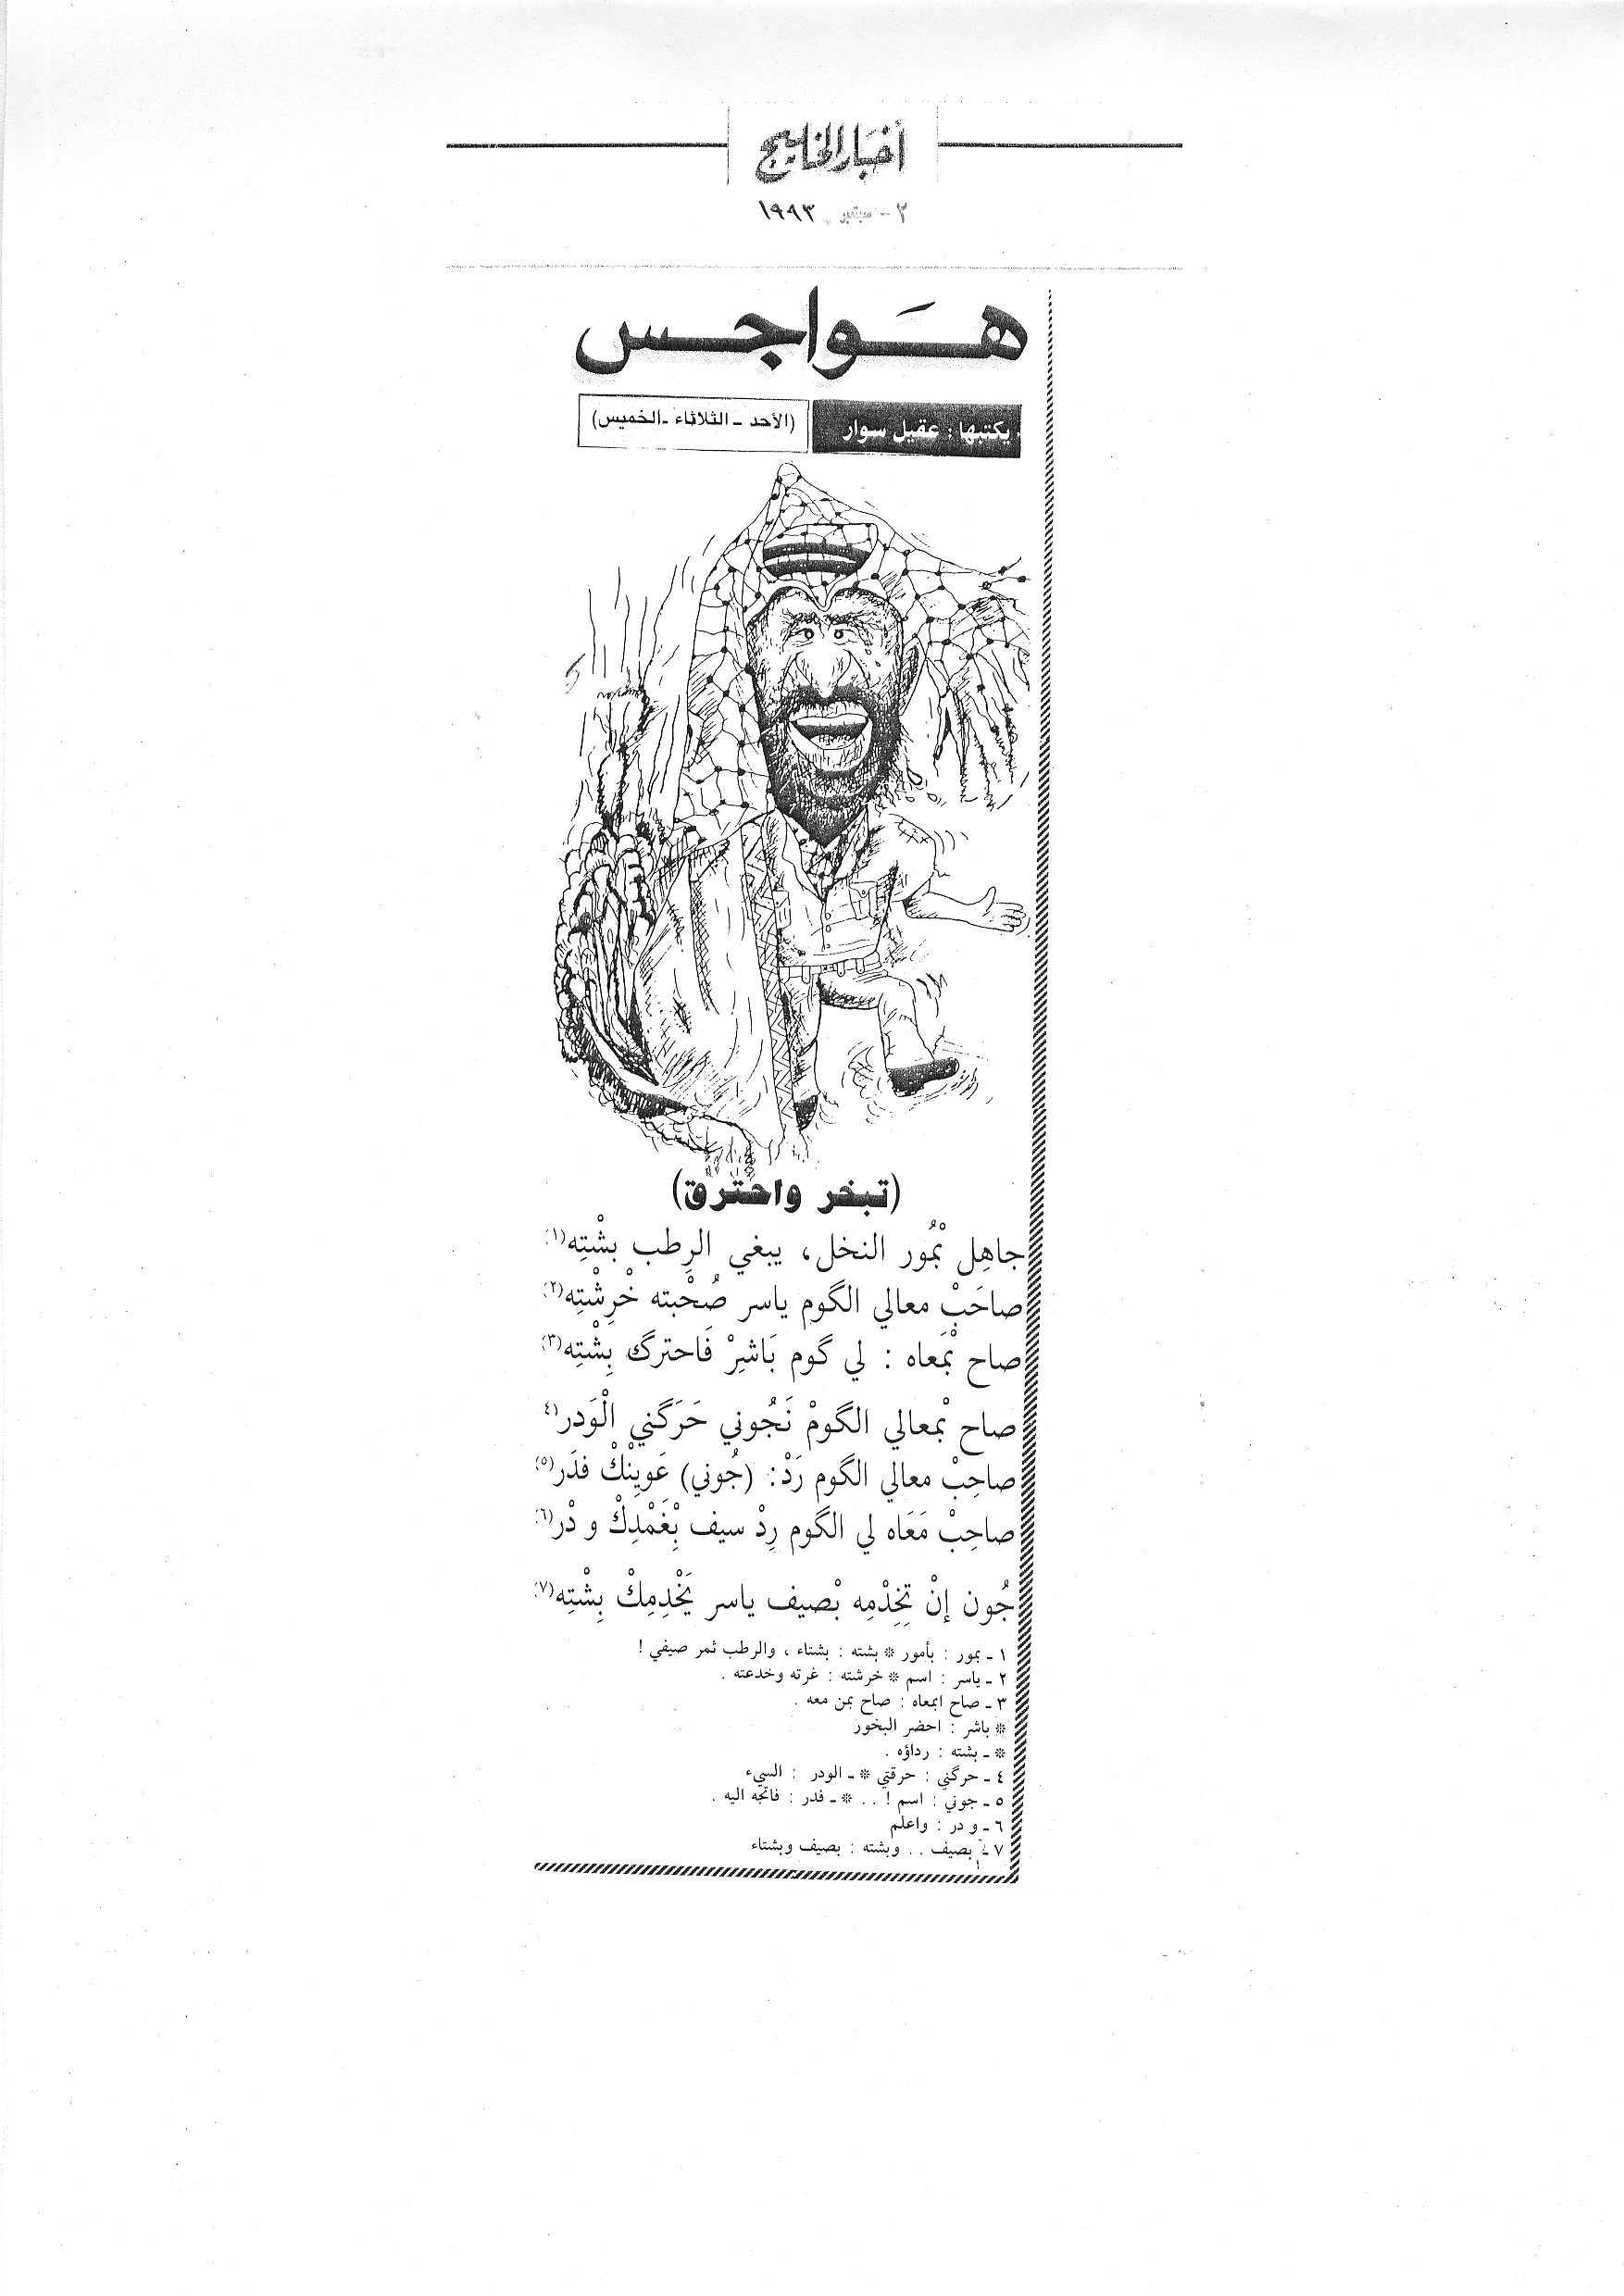 أخبار الخليج
٢ - سبتمبر ١٩٩٣
هَـواجـس
يكتبها : عقيل سوار
(الأحد - الثلاثاء - الخميس)
(تبخر واحترق)
جاهِل بْمُور النخل ، يبغي الرِطب بشْتِه (١)
صاحَبْ معالي الگوم ياسر صُحْبته خْرِشْتِه (٢)
صاح بْمَعاه : لي گوم بَاشِرْ فَاحترگ بِشْتِه (٣)
صاح بْمعالي الگومْ نَجُوني حَرَگني الْوَدر (٤)
صاحِبْ معالي الگوم رَدْ : (جُوني) عَوِينْكْ فدَر (٥)
صاحِبْ مَعَاه لي الگوم رِدْ سيف بْغَمْدِكْ و دْر (٦)
جُون إنْ تِخِدْمِه بْصيف ياسر يَخْدِمِكْ بِشْتِه (٧)
١ ـ بمور : بأمور * بشته : بشتاء ، والرطب ثمر صيفي !
٢ ـ ياسر : اسم * خرشته : غرته وخدعته .
٣ ـ صاح ابمعاه : صاح بمن معه .
* باشر : احضر البخور
* ـ بشته : رداؤه .
٤ ـ حرگني : حرقتي * ـ الودر : السيء
٥ ـ جوني : اسم ! . . * ـ فدر : فاتجه اليه .
٦ ـ و در : واعلم
٧ ـ بصيف . . وبشته : بصيف وبشتاء